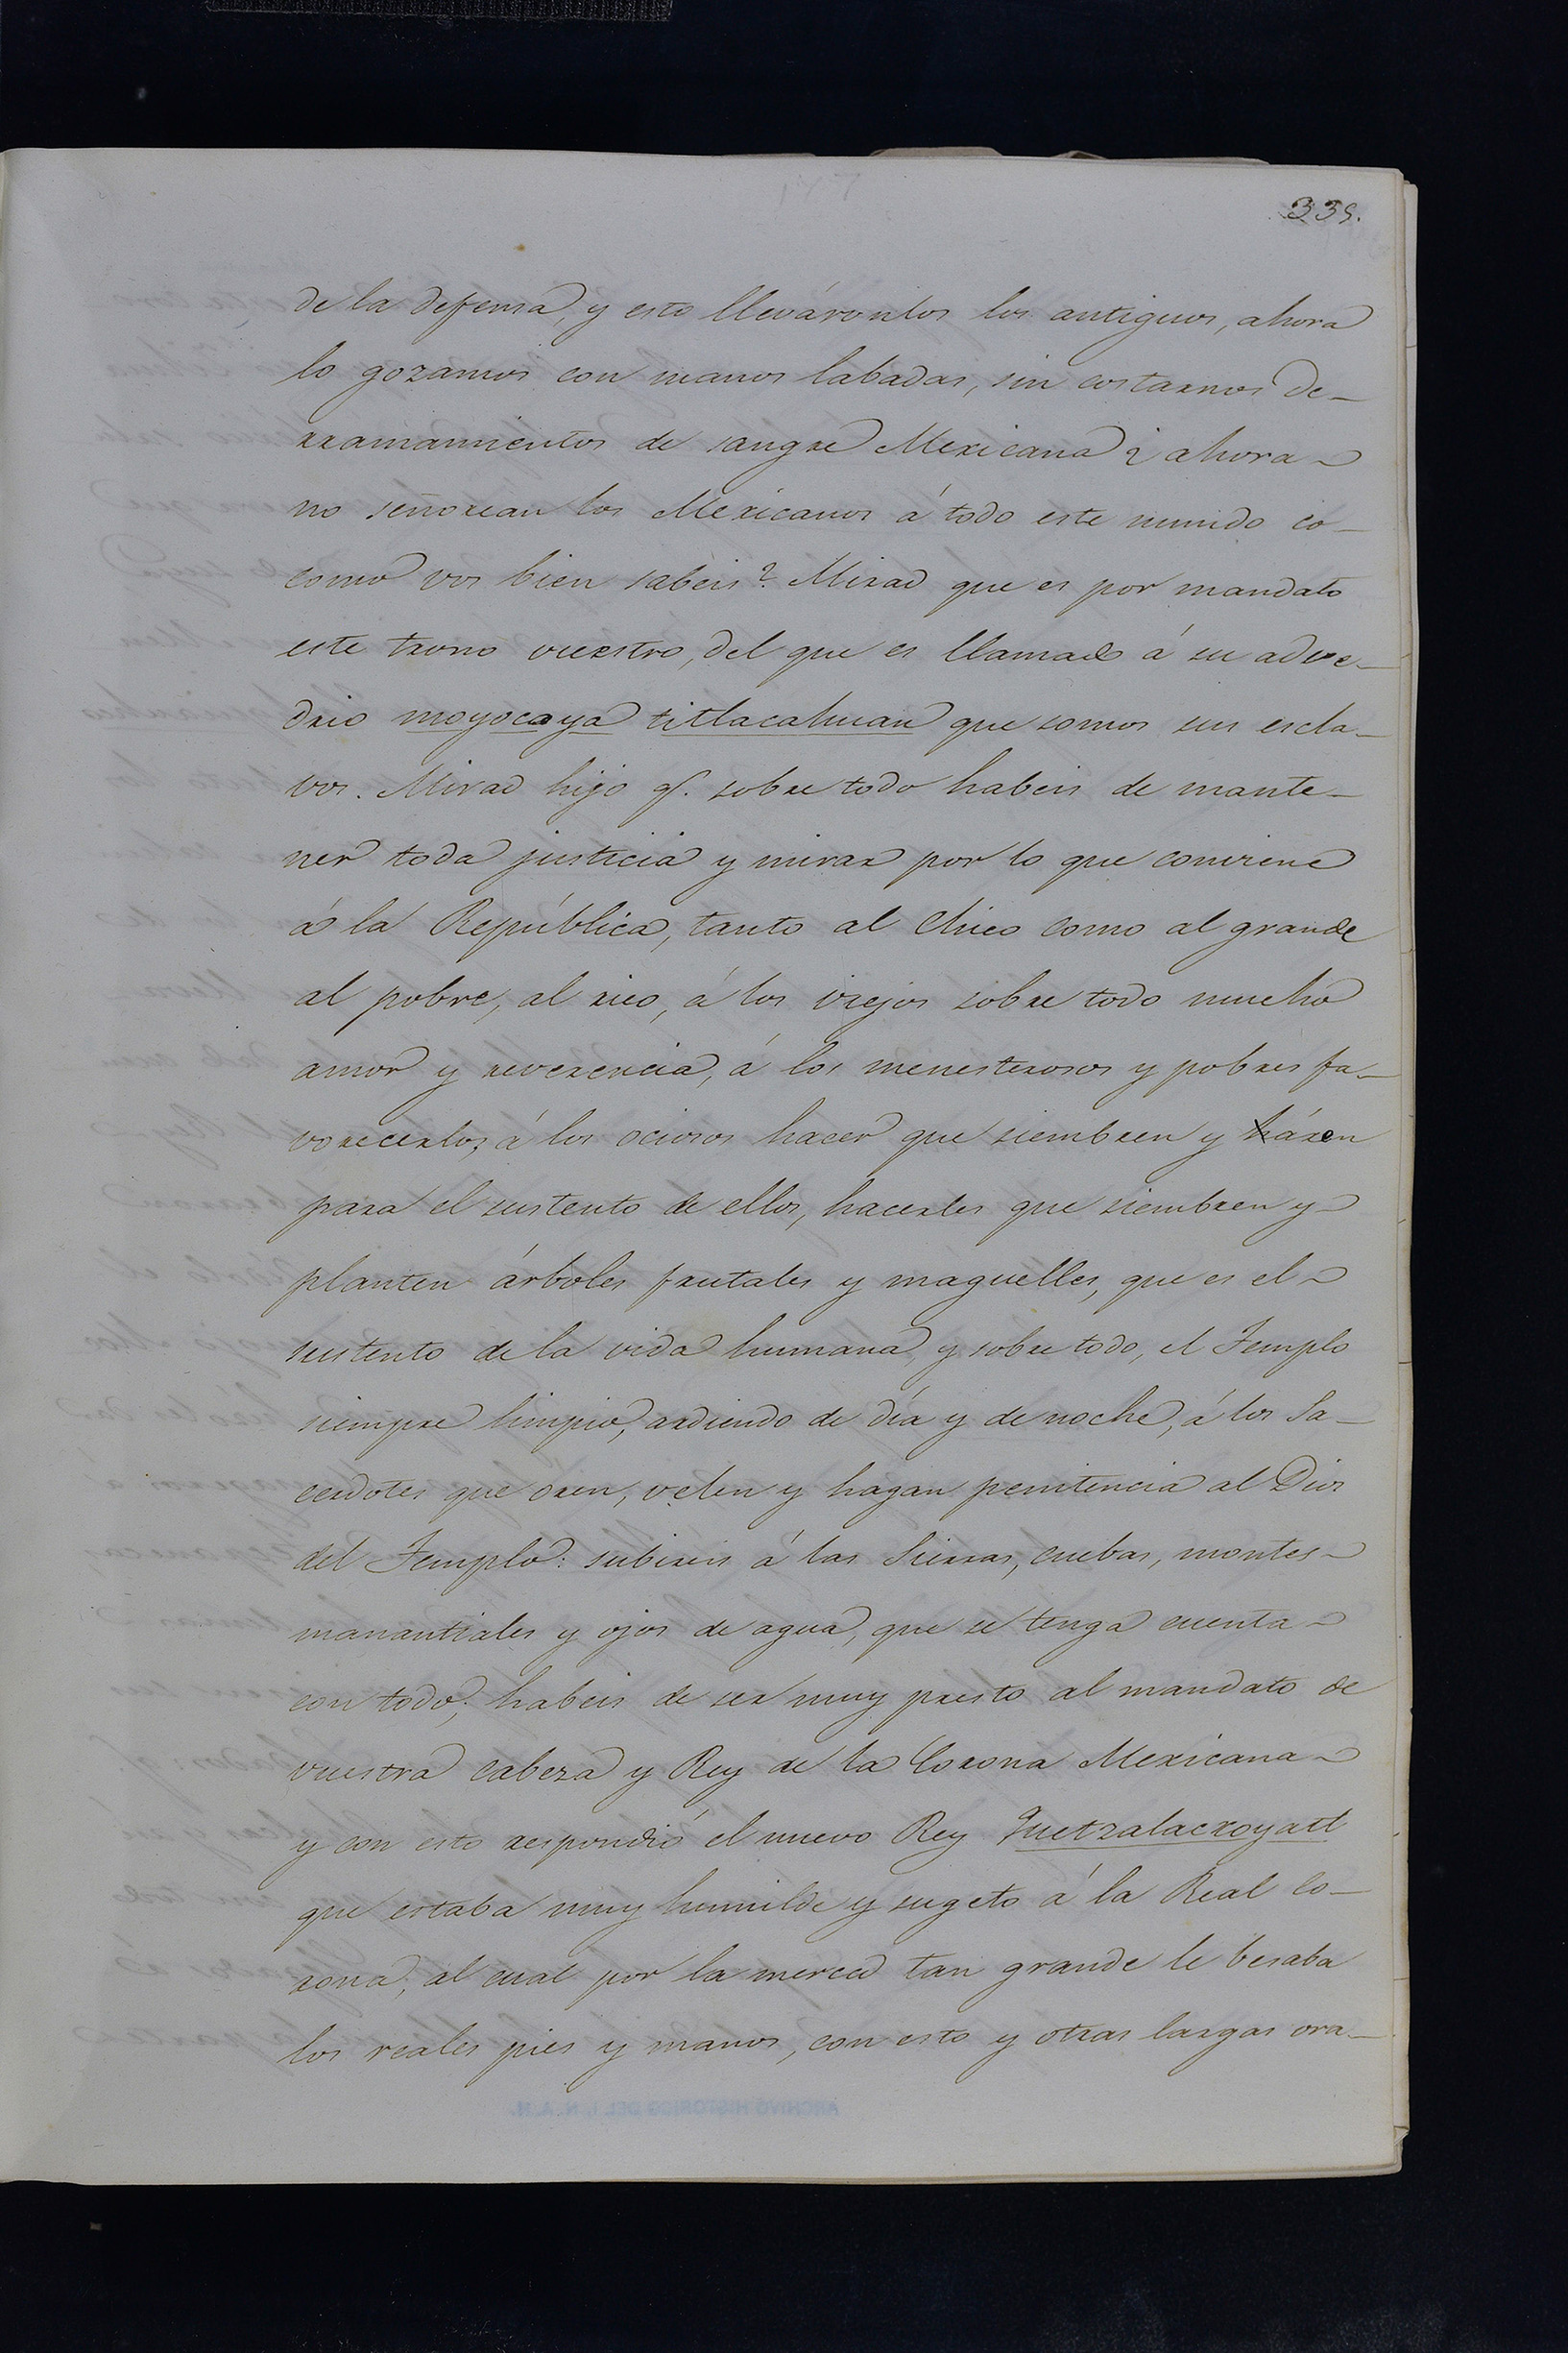 339.
de la defensa, y esto lleváronlos los antiguos, ahora
lo gozamos con manos labadas, sin costarnos de-
rramamientos de sangre Mexicana ¿ ahora
no señorean los Mexicanos á todo este mundo co-
como vos bien sabeis? Mirad que es por mandato
este trono vuestro, del que es llamado á su adve-
drio moyocoya titlacahuan que somos sus escla-
vos. Mirad hijo q. sobre todo habeis de mante-
ner toda justicia y mirar por lo que conviene
á la República, tanto al chico como al grande
al pobre, al rico, á los viejos sobre todo mucho
amor y reverencia, á los menesterosos y pobres fa-
vorecerlos, á los ociosos hacer que siembren y háren
para el sustento de ellos, hacerles que siembren y
planten árboles frutales y maguelles, que es el
sustento de la vida humana y sobre todo, el Templo
siempre limpio, ardiendo de día y de noche, á los Sa-
cerdotes que oren, velen y hagan penitencia al Dios
del Templo: subireis á las Sierras, cuebas, montes
manantiales y ojos de agua, que se tenga cuenta
con todo; habeis de ser muy presto al mandato de
vuestra cabeza y Rey de la Corona Mexicana
y con esto respondió el nuevo Rey Quetzalacxoyatl
que estaba muy humilde y sugeto á la Real Co-
rona, al cual por la merced tan grande le besaba
los reales pies y manos, con esto y otras largas ora-
ARCHIVO HISTORICO DEL I. N. A. H.